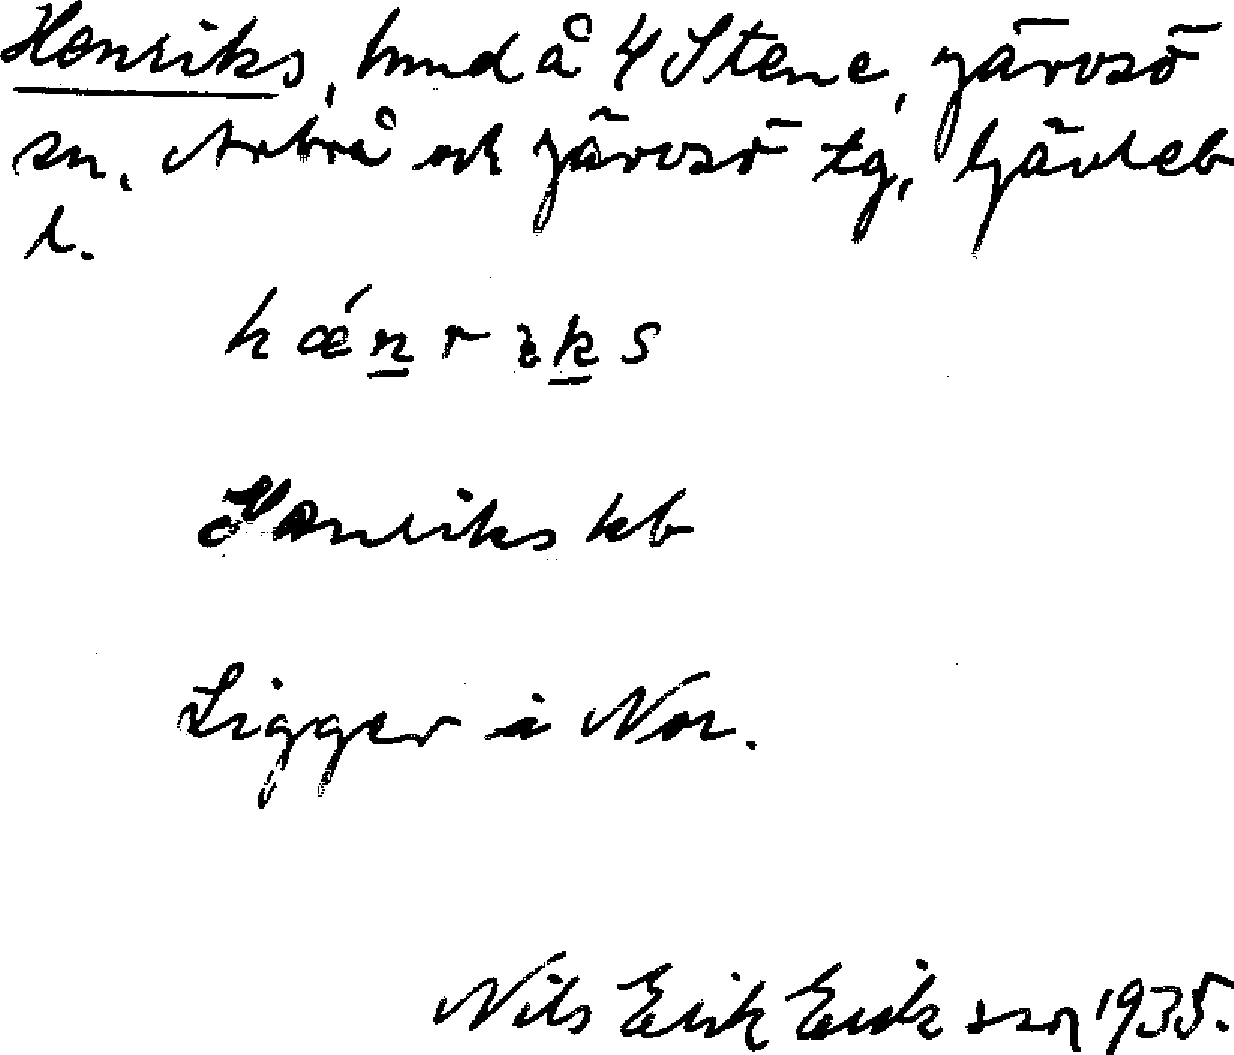 Henriks, hmd å 4 Stene, Järvsö
sn. Arbrå och Järvsö tg, Gävleb
l.
hǽnrɩks
Henriks kb
Ligger i Nor.
Nils Erik Eriksson 1935.